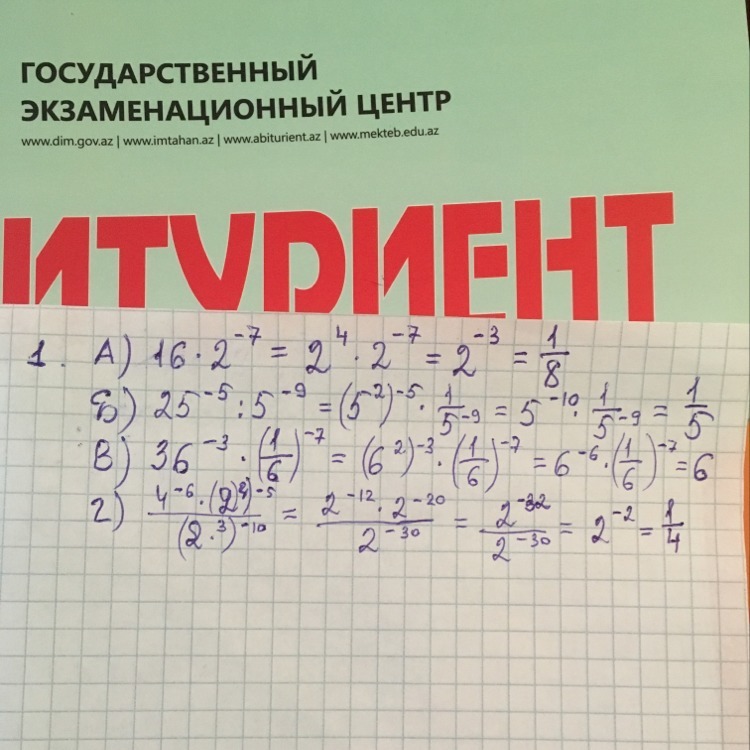 ГОСУДАРСТВЕННЫЙ
ЭКЗАМЕНАЦИОННЫЙ ЦЕНТР
www.dim.gov.az | www.imtahan.az | www.abiturient.az | www.mekteb.edu.az
ИТУРИЕНТ
1. А) 16 · 2⁻⁷ = 2⁴ · 2⁻⁷ = 2⁻³ = 1/8
Б) 25⁻⁵ : 5⁻⁹ = (5⁻²)⁻⁵ · 1/5⁻⁹ = 5⁻¹⁰ · 1/5⁻⁹ = 1/5
В) 36⁻³ · (1/6)⁻⁷ = (6²)⁻³ · (1/6)⁻⁷ = 6⁻⁶ · (1/6)⁻⁷ = 6
г) 4⁻⁶ · (2⁴)⁻⁵ / (2·³)⁻¹⁰ = 2⁻¹² · 2⁻²⁰ / 2⁻³⁰ = 2⁻³² / 2⁻³⁰ = 2⁻² = 1/4